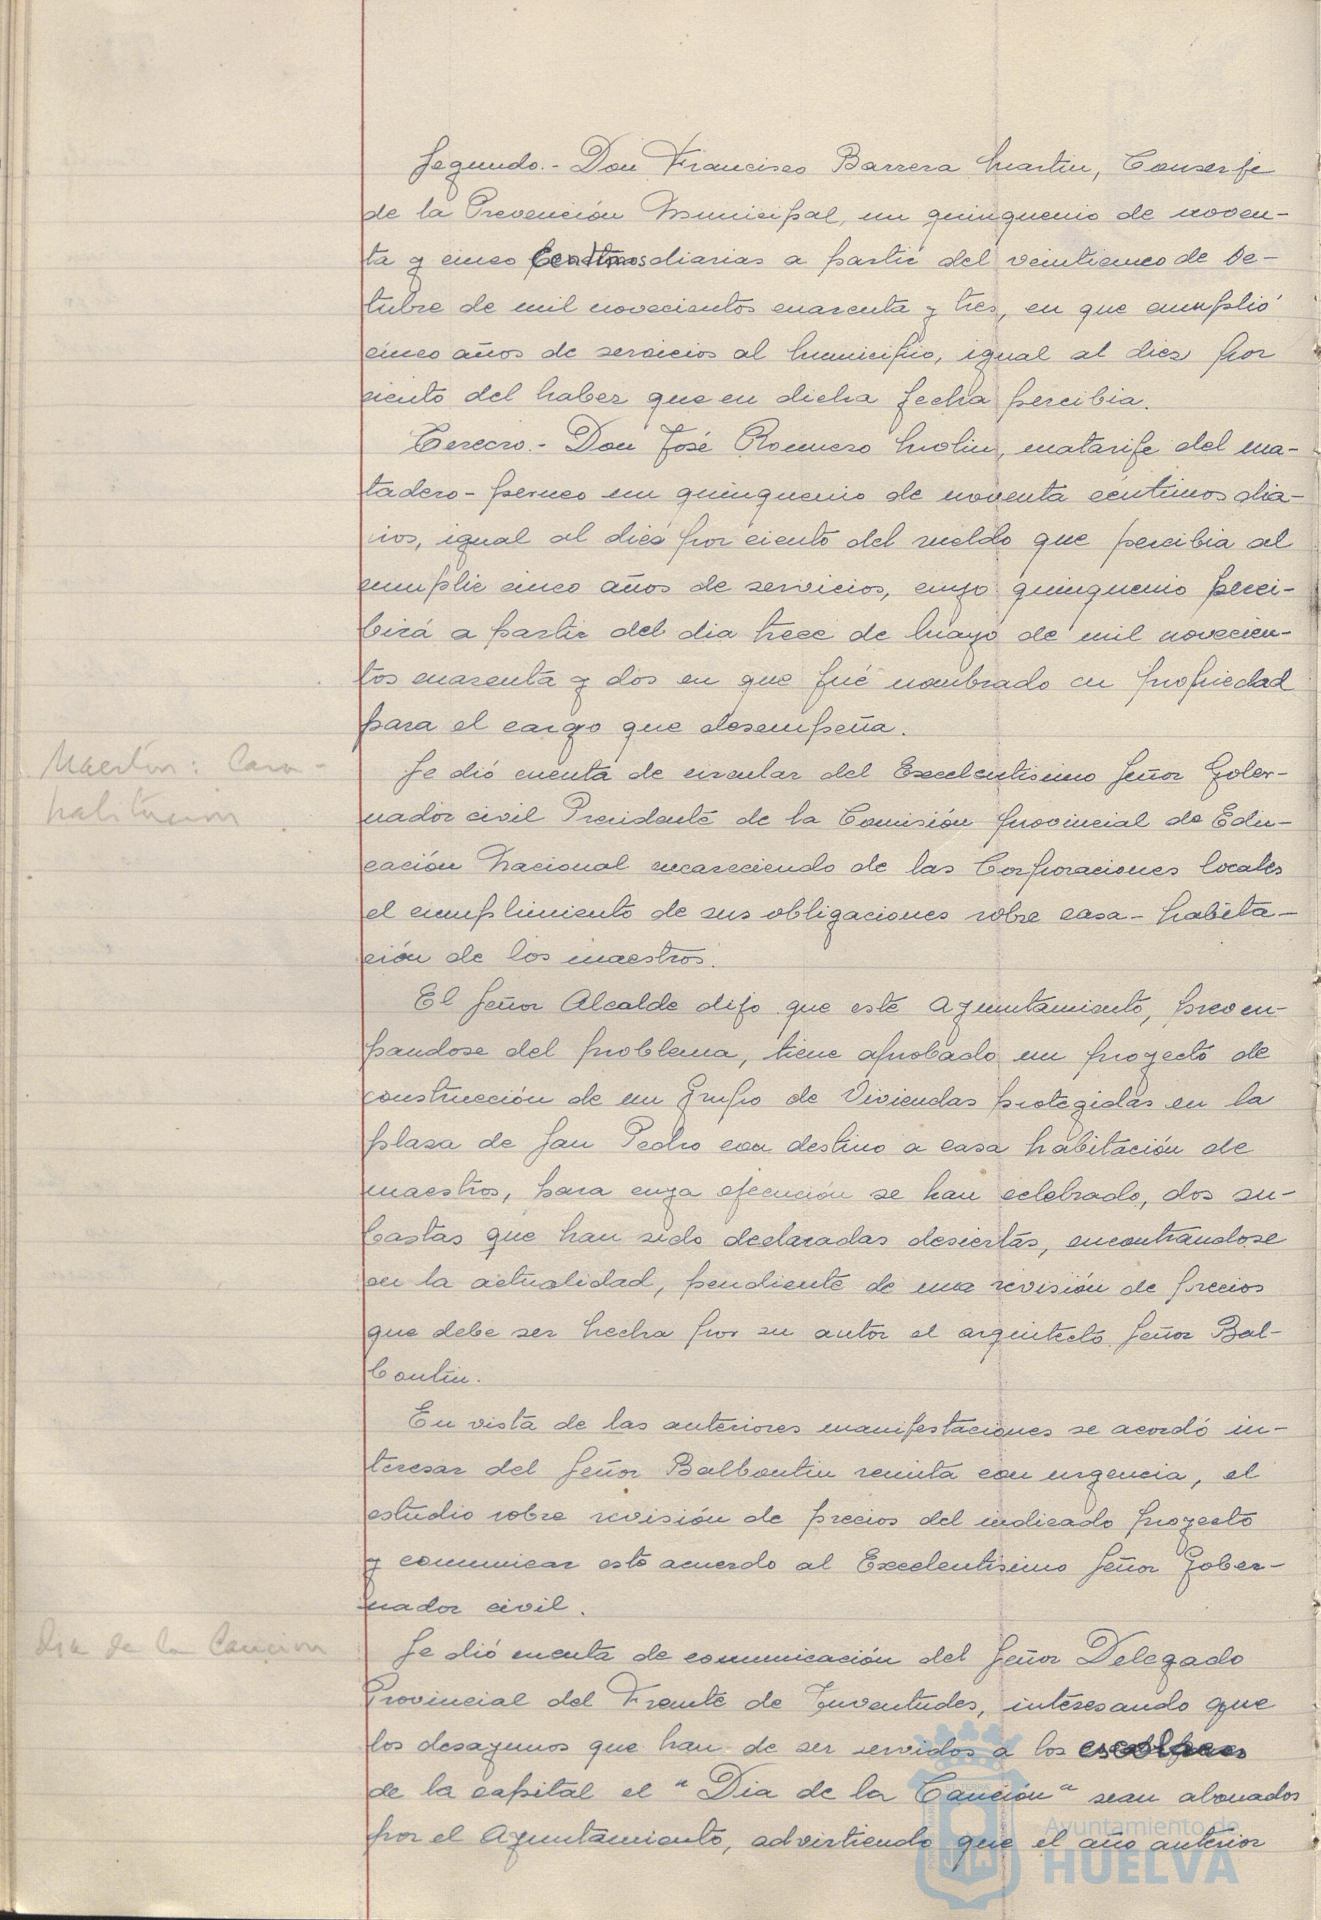 Segundo.- Don Francisco Barrera Martin, Conserje
de la Prevención Municipal, un quinquenio de noven-
ta y cinco centimos diarias a partir del veinticinco de Oc-
tubre de mil novecientos cuarenta y tres, en que cumplió
cinco años de servicios al Municipio, igual al diez por
ciento del haber que en dicha fecha percibia.
Tercero.- Don José Romero Molin, matarife del ma-
tadero- perneo un quinquenio de noventa céntimos dia-
rios, igual al diez por ciento del sueldo que percibia al
cumplir cinco años de servicios, cuyo quinquenio perci-
birá a partir del dia trece de Mayo de mil novecien-
tos cuarenta y dos en que fué nombrado en propiedad
para el cargo que desempeña.
Maestros: Casa-
habitacion
Se dió cuenta de circular del Excelentisimo Señor Gober-
nador civil Presidente de la Comisión provincial de Edu-
cación Nacional encareciendo de las Corporaciones locales
el cumplimiento de sus obligaciones sobre casa- habita-
ción de los maestros.
El Señor Alcalde dijo que este Ayuntamiento, preocu-
pandose del problema, tiene aprobado un proyecto de
construcción de un Grupo de Viviendas protegidas en la
plaza de San Pedro con destino a casa habitación de
maestros, para cuya ejecución se han celebrado, dos su-
bastas que han sido declaradas desiertas, encontrandose
en la actualidad, pendiente de una revisión de precios
que debe ser hecha por su autor el arquitecto Señor Bal-
bontin.
En vista de las anteriores manifestaciones se acordó in-
teresar del Señor Balbontin remita con urgencia, el
estudio sobre revisión de precios del indicado proyecto
y comunicar este acuerdo al Excelentisimo Señor Gober-
nador civil.
Dia de la Cancion
Se dió cuenta de comunicación del Señor Delegado
Provincial del Frente de Juventudes, interesando que
los desayunos que han de ser servidos a los escolares
de la capital el "Dia de la Canción" sean abonados
por el Ayuntamiento, advirtiendo que el año anterior
Ayuntamiento de
HUELVA